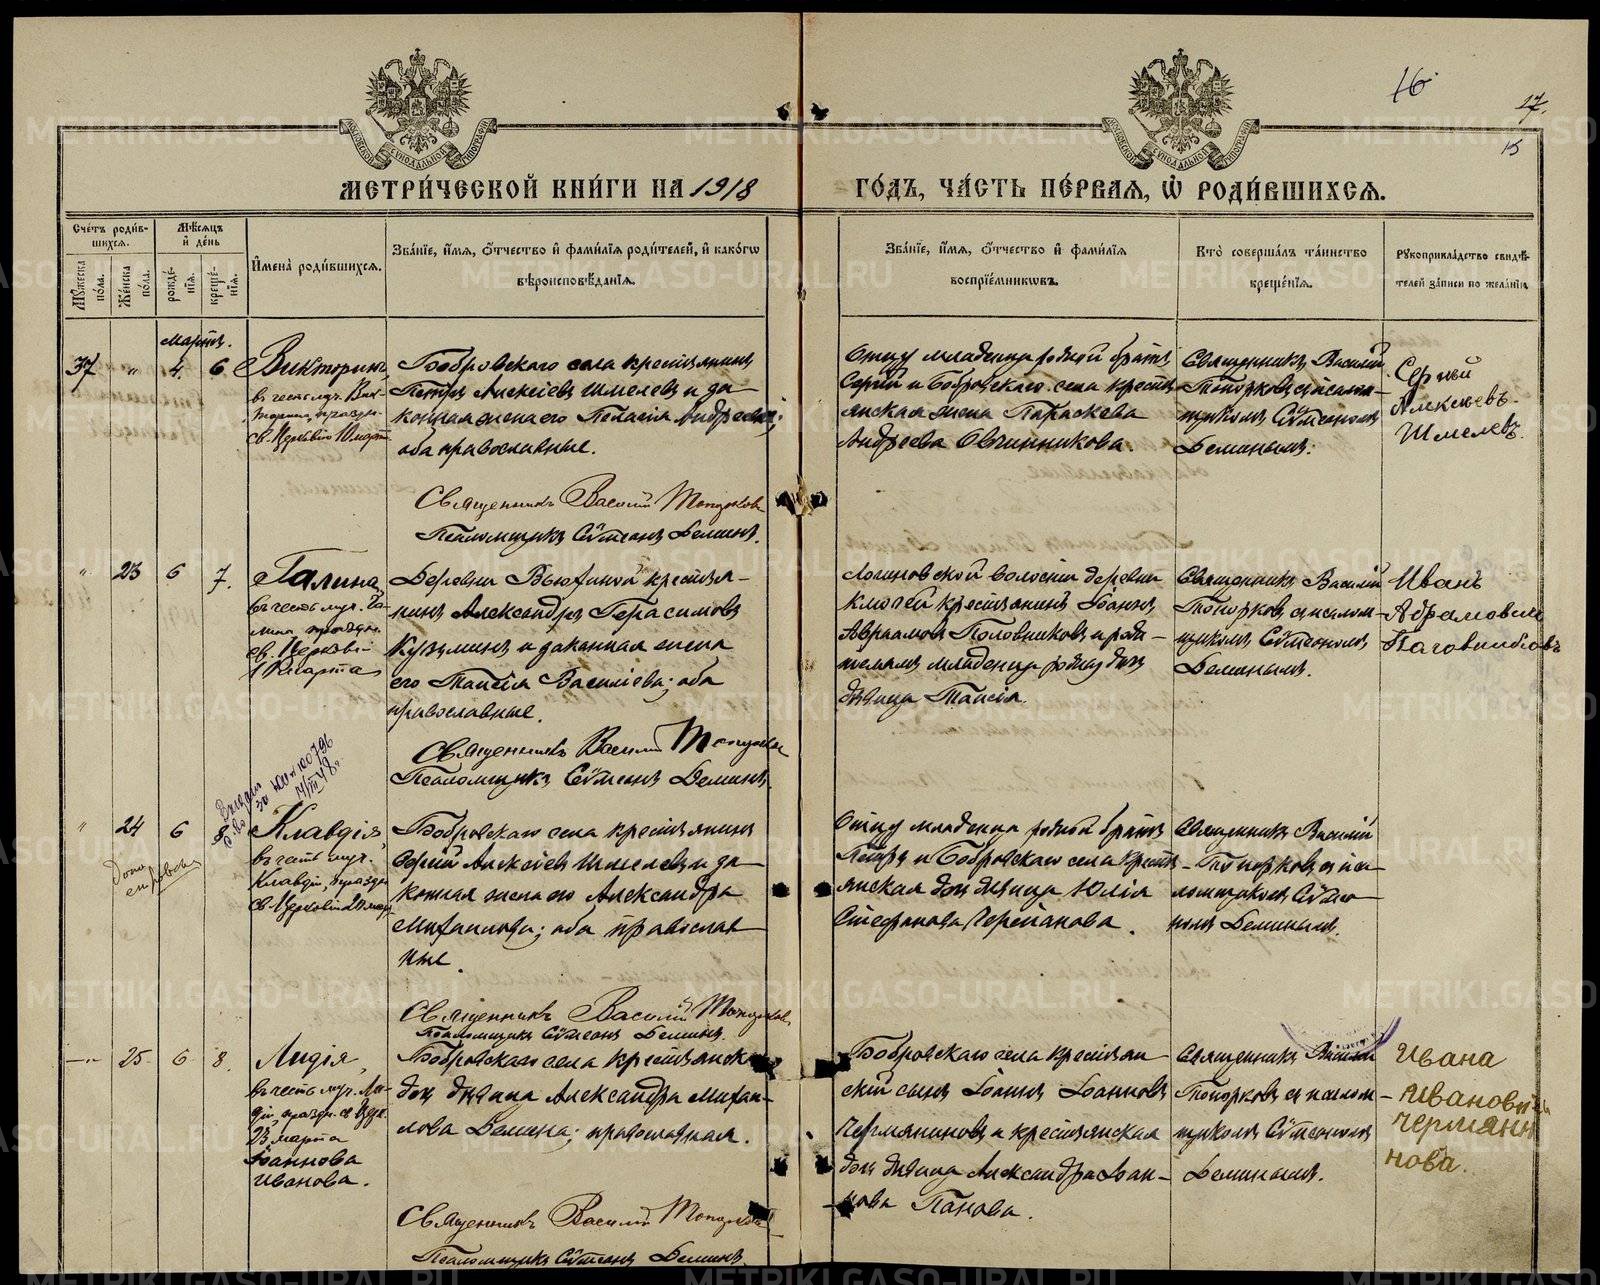 16
17.
15
МЕТРИ́ЧЕСКОЙ КНИ́ГИ НА 1918
ГО́ДЪ, ЧА́СТЬ ПЕ́РВАЯ, Ѡ РОДИ́ВШИХСЯ.
Сче́тъ роди́в-
шихся.
Мѣ́сяцъ
и де́нь
Мꙋ́жеска
по́ла.
Же́нска
по́ла.
рожде́-
нїя.
креще́-
нїя.
И́мена роди́вшихся.
Зва́нїе, и́мя, о́тчество и фами́лїя роди́телей, и како́гѡ
вѣроисповѣ́данїя.
Зва́нїе, и́мя, о́тчество и фами́лїя
воспрїе́мниковъ.
Кто̀ соверша́лъ та́инство
креще́нїя.
Рꙋкоприкла́дство свидѣ́-
телей за́писи по жела́нїю
Марта.
37 " 4. 6
Викторинъ,
въ честь мч. Вик-
торина, праздн.
св. Церковію
Бобровскаго села крестьянинъ
Петръ Алексіевъ Шмелевъ и за-
конная жена его Пелагія Андреева;
оба православные.
Священникъ Василій Топорковъ
Псаломщикъ Сѵмеонъ Деминъ.
Отцу младенца родной братъ
Сергій и Бобровскаго села кресть-
янская жена Параскева
Андреева Овчинникова.
Священникъ Василій
Топорковъ съ псалом-
щикомъ Сѵмеономъ
Деминымъ.
Сергѣй
Алексѣевъ
Шмелевъ.
" 23 6 7.
Галина,
въ честь мч. Га-
лины, праздн.
св. Церкові-
Марта
Деревни Вьюхиной крестья-
нинъ Александръ Герасимовъ
Кузьминъ и законная жена
его Таисія Василіева; оба
православные.
Священникъ Василій Топорковъ
Псаломщикъ Сѵмеонъ Деминъ.
Логиновской волости деревни
Ключей крестьянинъ Іоаннъ
Авраамовъ Половниковъ и роди-
телямъ младенца родная дочь
дѣвица Таисія.
Священникъ Василій
Топорковъ съ псалом-
щикомъ Сѵмеономъ
Деминымъ.
Иванъ
Абрамовичъ
" 24 6 8
Клавдія,
въ честь мч.
Клавдіи, праздн.
св. Церковію 20 мар.
Бобровскаго села крестьянинъ
Сергій Алексіевъ Шмелевъ и за-
конная жена его Александра
Михаилова; оба православ-
ные.
Священникъ Василій Топорковъ
Псаломщикъ Сѵмеонъ Деминъ.
Отцу младенца родной братъ
Петръ и Бобровскаго села кресть-
янская дочь дѣвица Юлія
Стефанова Черепанова.
Священникъ Василій
Топорковъ съ пса-
ломщикомъ Сѵмео-
номъ Деминымъ.
—"— 25 6 8.
Лидія,
въ честь мч. Ли-
діи, праздн. св. Церк.
23 марта
Іоаннова
Иванова.
Бобровскаго села крестьянская
дочь дѣвица Александра Михаи-
лова Демина; православная.
Священникъ Василій Топорковъ
Псаломщикъ Сѵмеонъ Деминъ.
Бобровскаго села крестьян-
скій сынъ Іоаннъ Іоанновъ
Чермяниновъ и крестьянская
дочь дѣвица Александра Іоан-
нова Панова.
Священникъ Василій
Топорковъ съ псалом-
щикомъ Сѵмеономъ
Деминымъ.
Ивана
Иванович
Чермяни
нова.